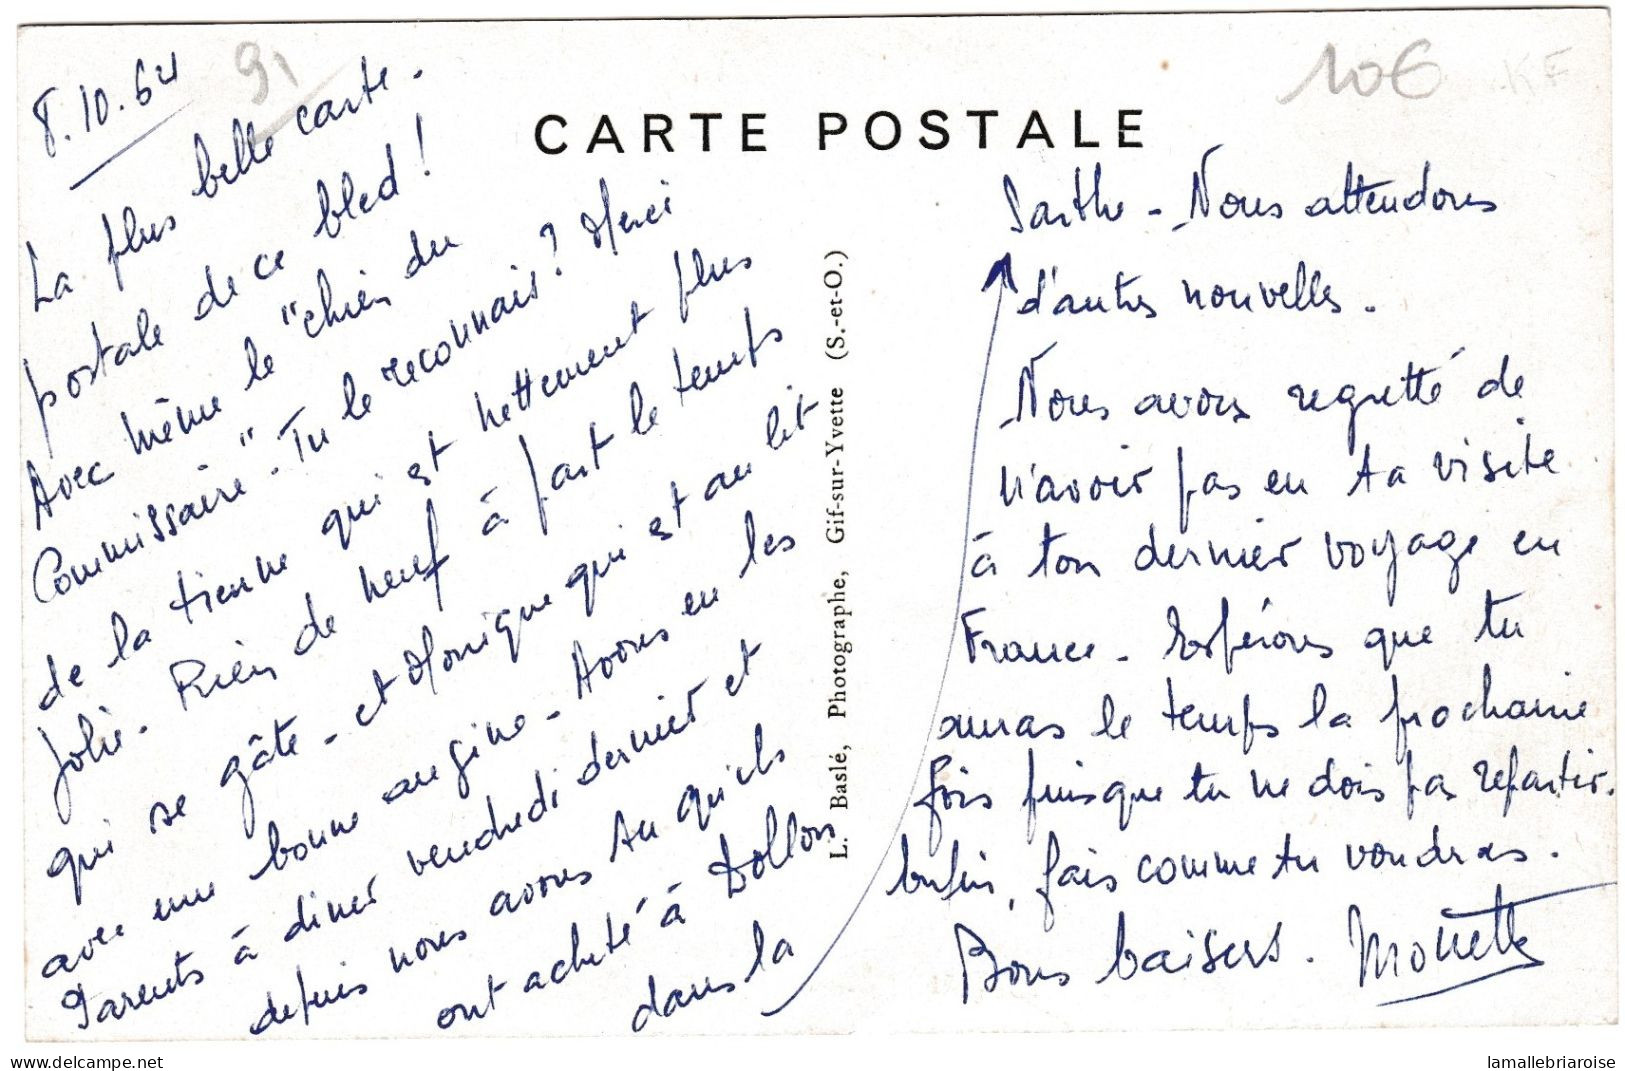 CARTE POSTALE
91
10€
KF
8.10.64
La plus belle carte-
postale de ce bled!
Avec même le "chien du
Commissaire". Tu le reconnais? Merci
de la tienne qui est nettement plus
jolie. Rien de neuf à part le temps
qui se gâte - et Monique qui est au lit
avec une bonne angine - Avons eu les
Parents à dîner vendredi dernier et
depuis nous avons su qu'ils
ont acheté à Dollon
dans la
Sarthe - Nous attendons
d'autres nouvelles.
Nous avons regretté de
n'avoir pas eu ta visite
à ton dernier voyage en
France - Espérons que tu
auras le temps la prochaine
fois puisque tu ne dois pas repartir.
Enfin, fais comme tu voudras.
Bons baisers. Monette
L. Baslé, Photographe, Gif-sur-Yvette (S.-et-O.)
https://www.delcampe.net
lamallebriaroise